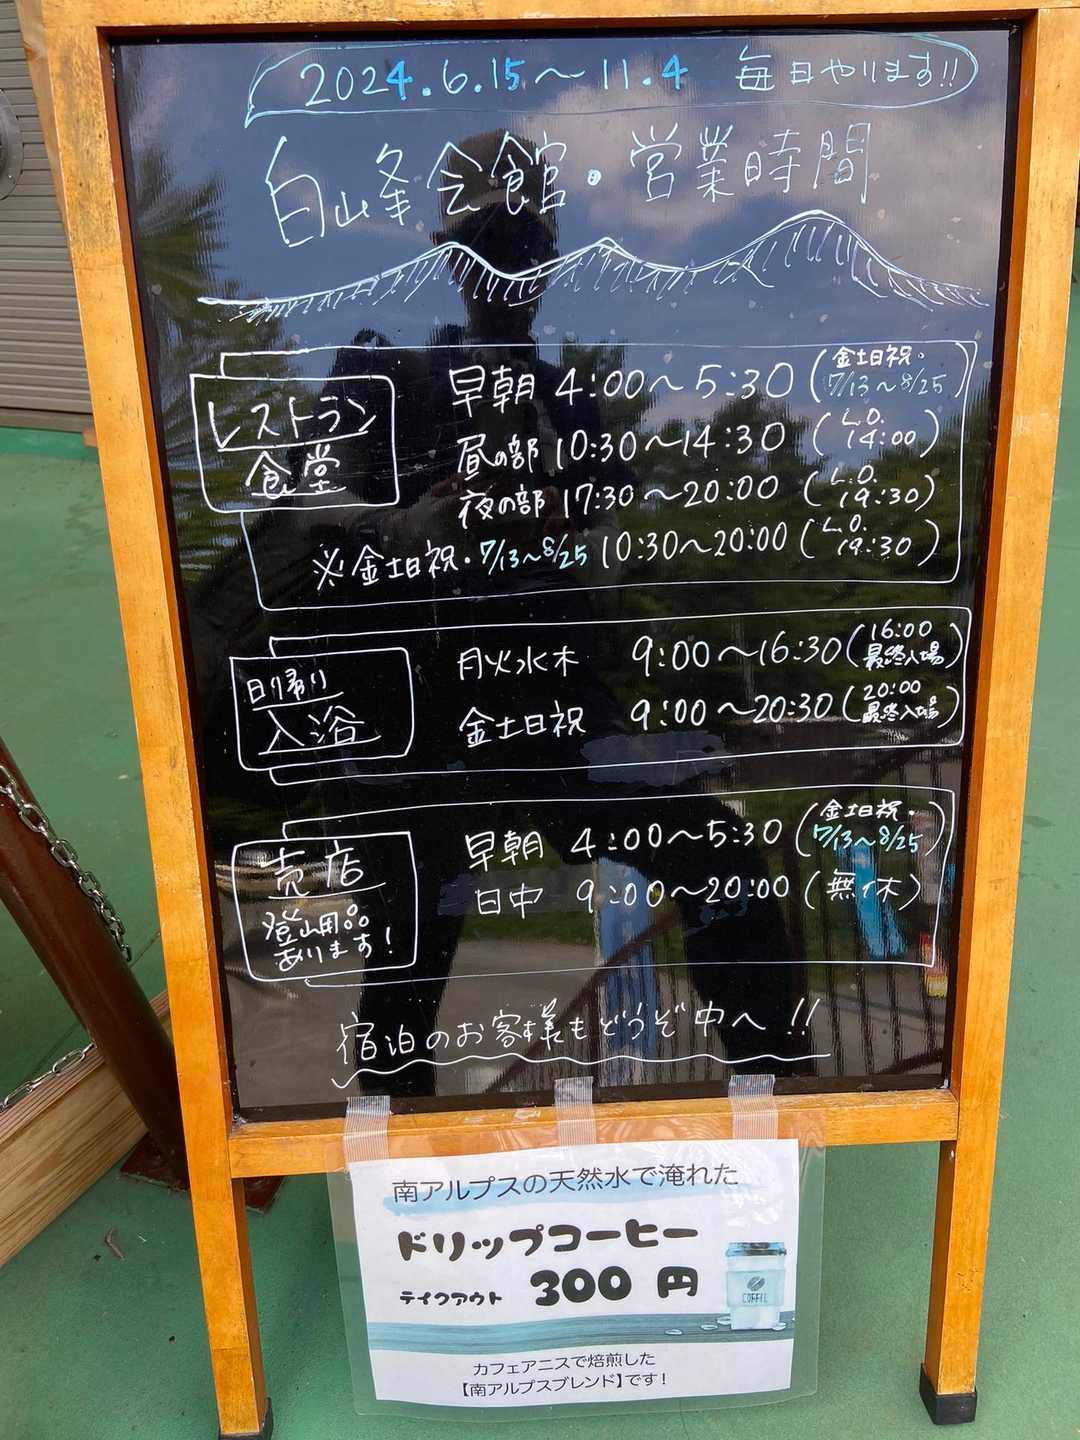 2024.6.15～11.4 毎日やります!!
白峰会館・営業時間
レストラン
食堂
早朝 4:00～5:30 (金土日祝・7/13～8/25)
昼の部 10:30～14:30 (L.O. 14:00)
夜の部 17:30～20:00 (L.O. 19:30)
※金土日祝・7/13～8/25 10:30～20:00 (L.O. 19:30)
日帰り
入浴
月火水木 9:00～16:30 (16:00 最終入場)
金土日祝 9:00～20:30 (20:00 最終入場)
売店
登山用品
あります!
早朝 4:00～5:30 (金土日祝・7/13～8/25)
日中 9:00～20:00 (無休)
宿泊のお客様もどうぞ中へ!!
南アルプスの天然水で淹れた
ドリップコーヒー
テイクアウト 300円
COFFEE
カフェアニスで焙煎した
【南アルプスブレンド】です!